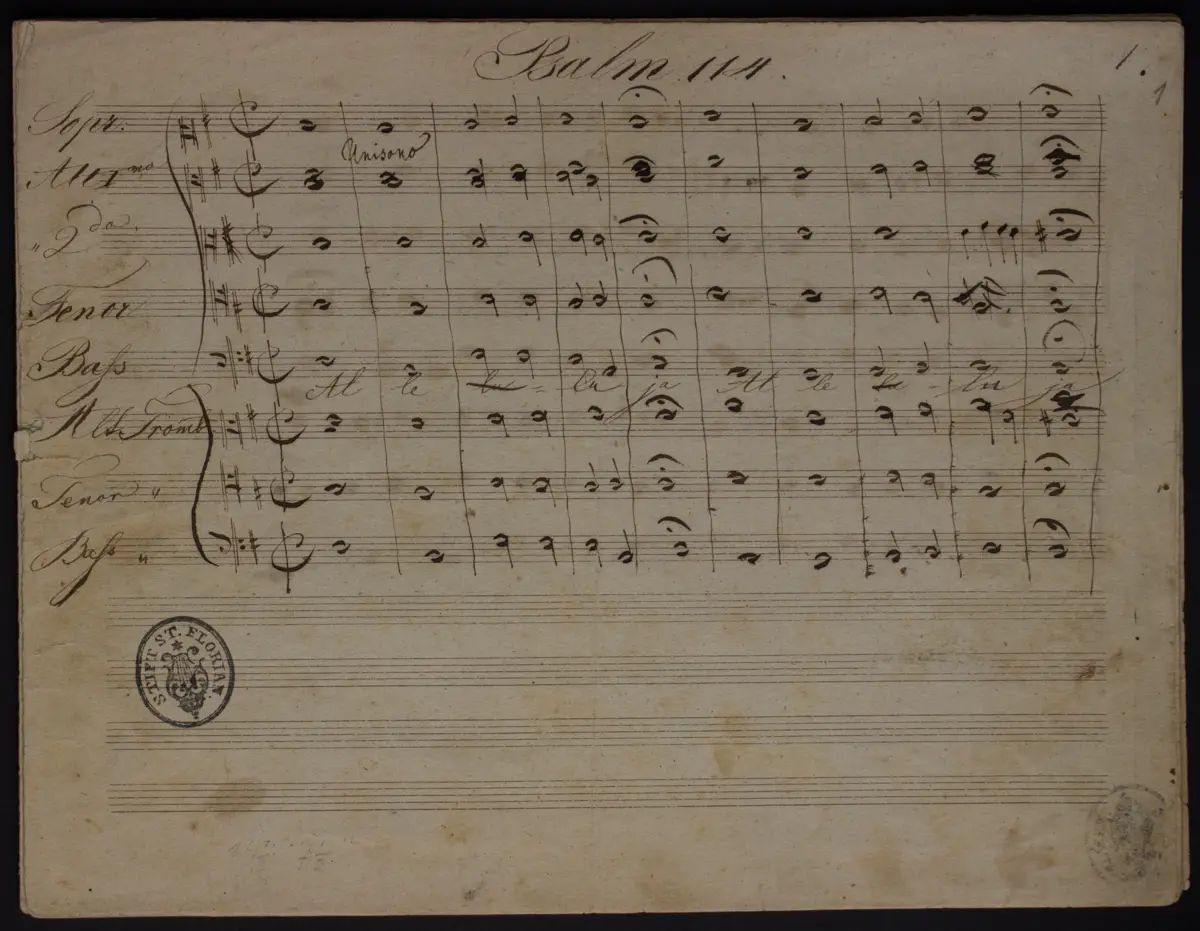 Psalm 114.
1.
1
Sopr:
Alt 1mo
Unisono
" 2do.
Tenor
Baſs
Al le lu - lu ja Al le lu - lu ja
Alt Tromb
Tenor "
Baſs "
STIFT ST. FLORIAN.